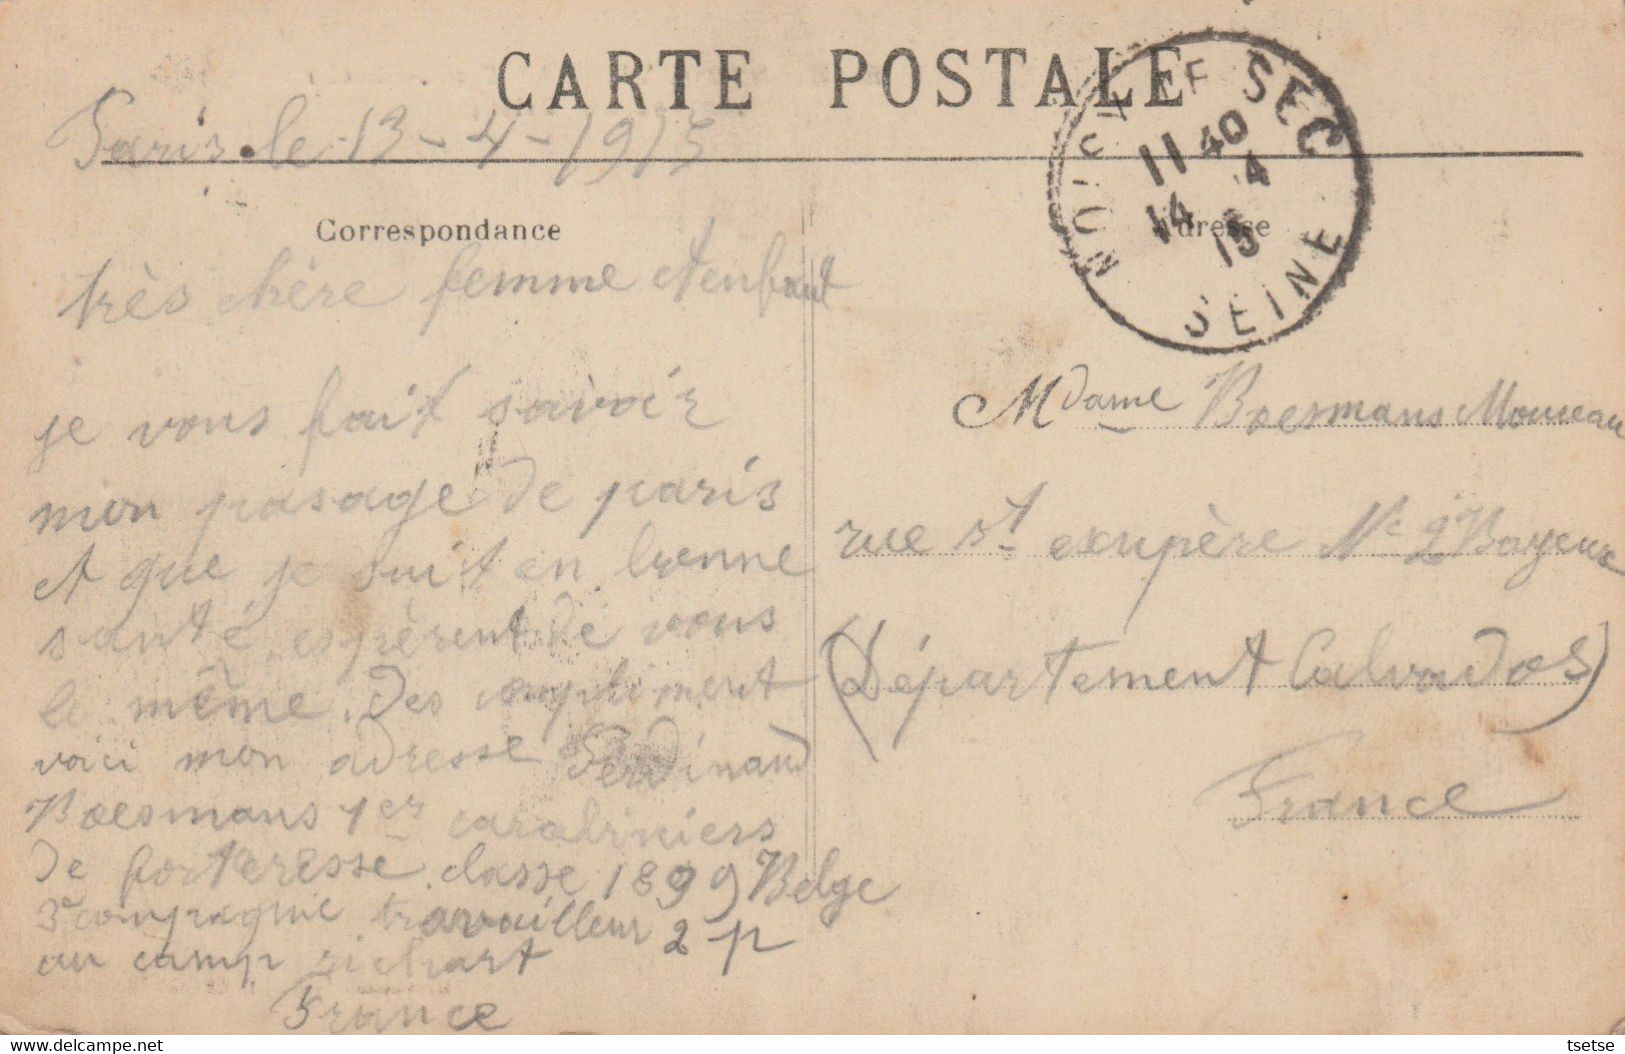 CARTE POSTALE
Paris le 13-4-1915
Correspondance
très chère femme et enfant
je vous fait savoir
mon pasage de paris
et que je suit en bonne
santé espèrent de vous
le même. Des compliment
voici mon adresse Ferdinand
Boesmans 1er carabiniers
de forteresse classe 1899 Belge
3e compagnie travailleur 2 p
au camp richart
France
NOISY LE SEC
11 40
14 4
15
SEINE
Adresse
Mdame Boesmans Moureau
rue St exupère No 2 Bayeux
(Département Calvados)
France
tsetse
delcampe.net